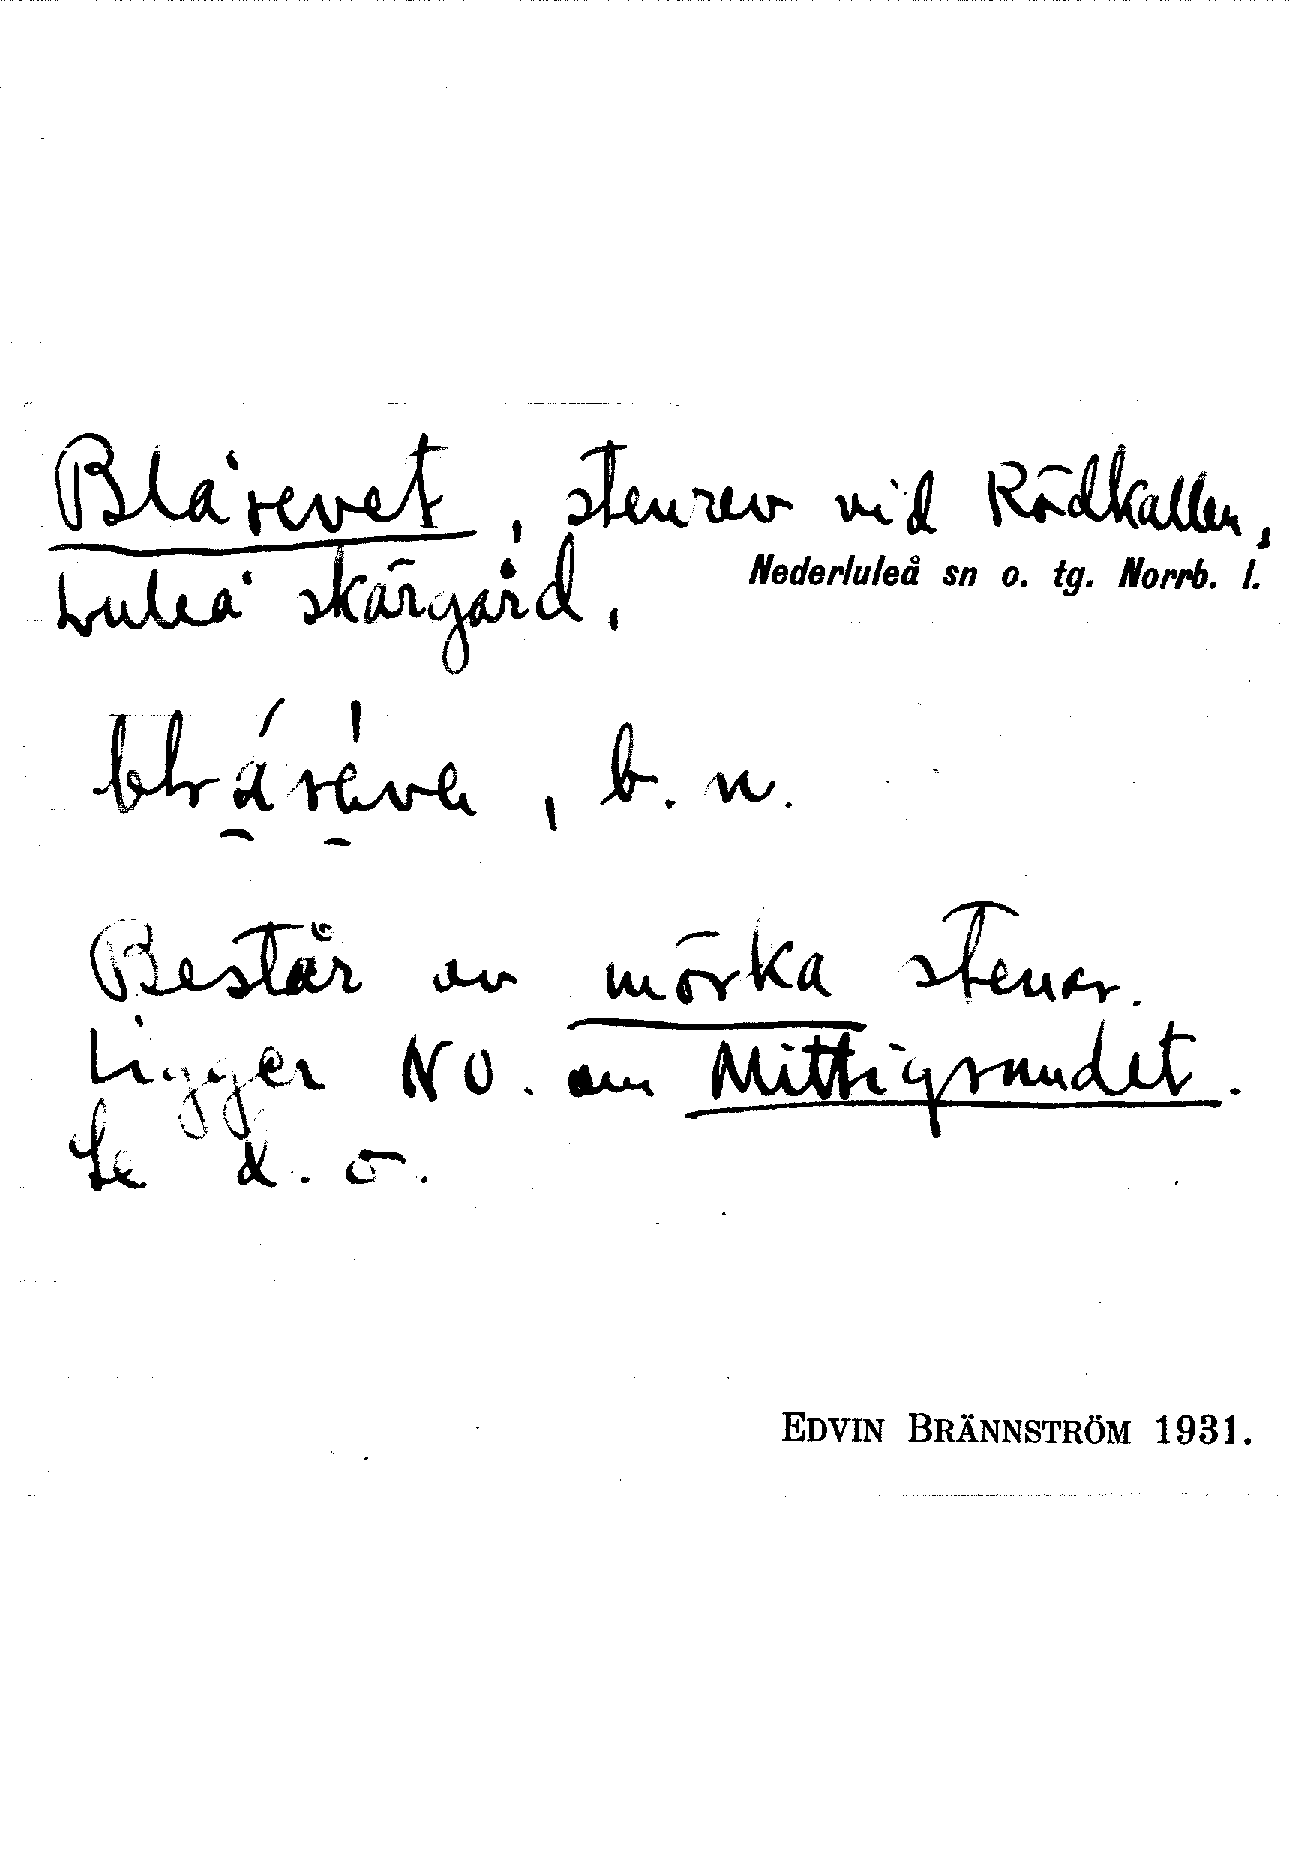 Blårevet, stenrev vid Rödkallen,
Nederluleå sn o. tg. Norrb. l.
Luleå skärgård.
b. n.
Består av mörka stenar.
Ligger NO. om Mittigrundet.
Se d. o.
EDVIN BRÄNNSTRÖM 1931.